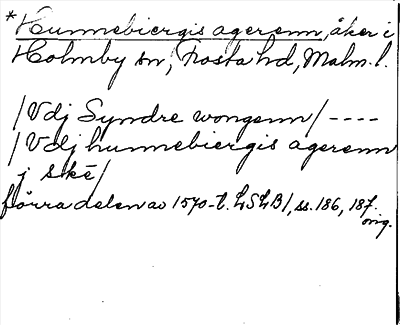 *Hunnebiergis agerenn, åker i
Holmby sn, Frosta hd, Malm. l.
/Vdj Syndre wongenn/ ----
/Vdj hunnebiergis agerenn
j skē/
förra delen av 1570-t. LSLB/, ss. 186, 187.
orig.